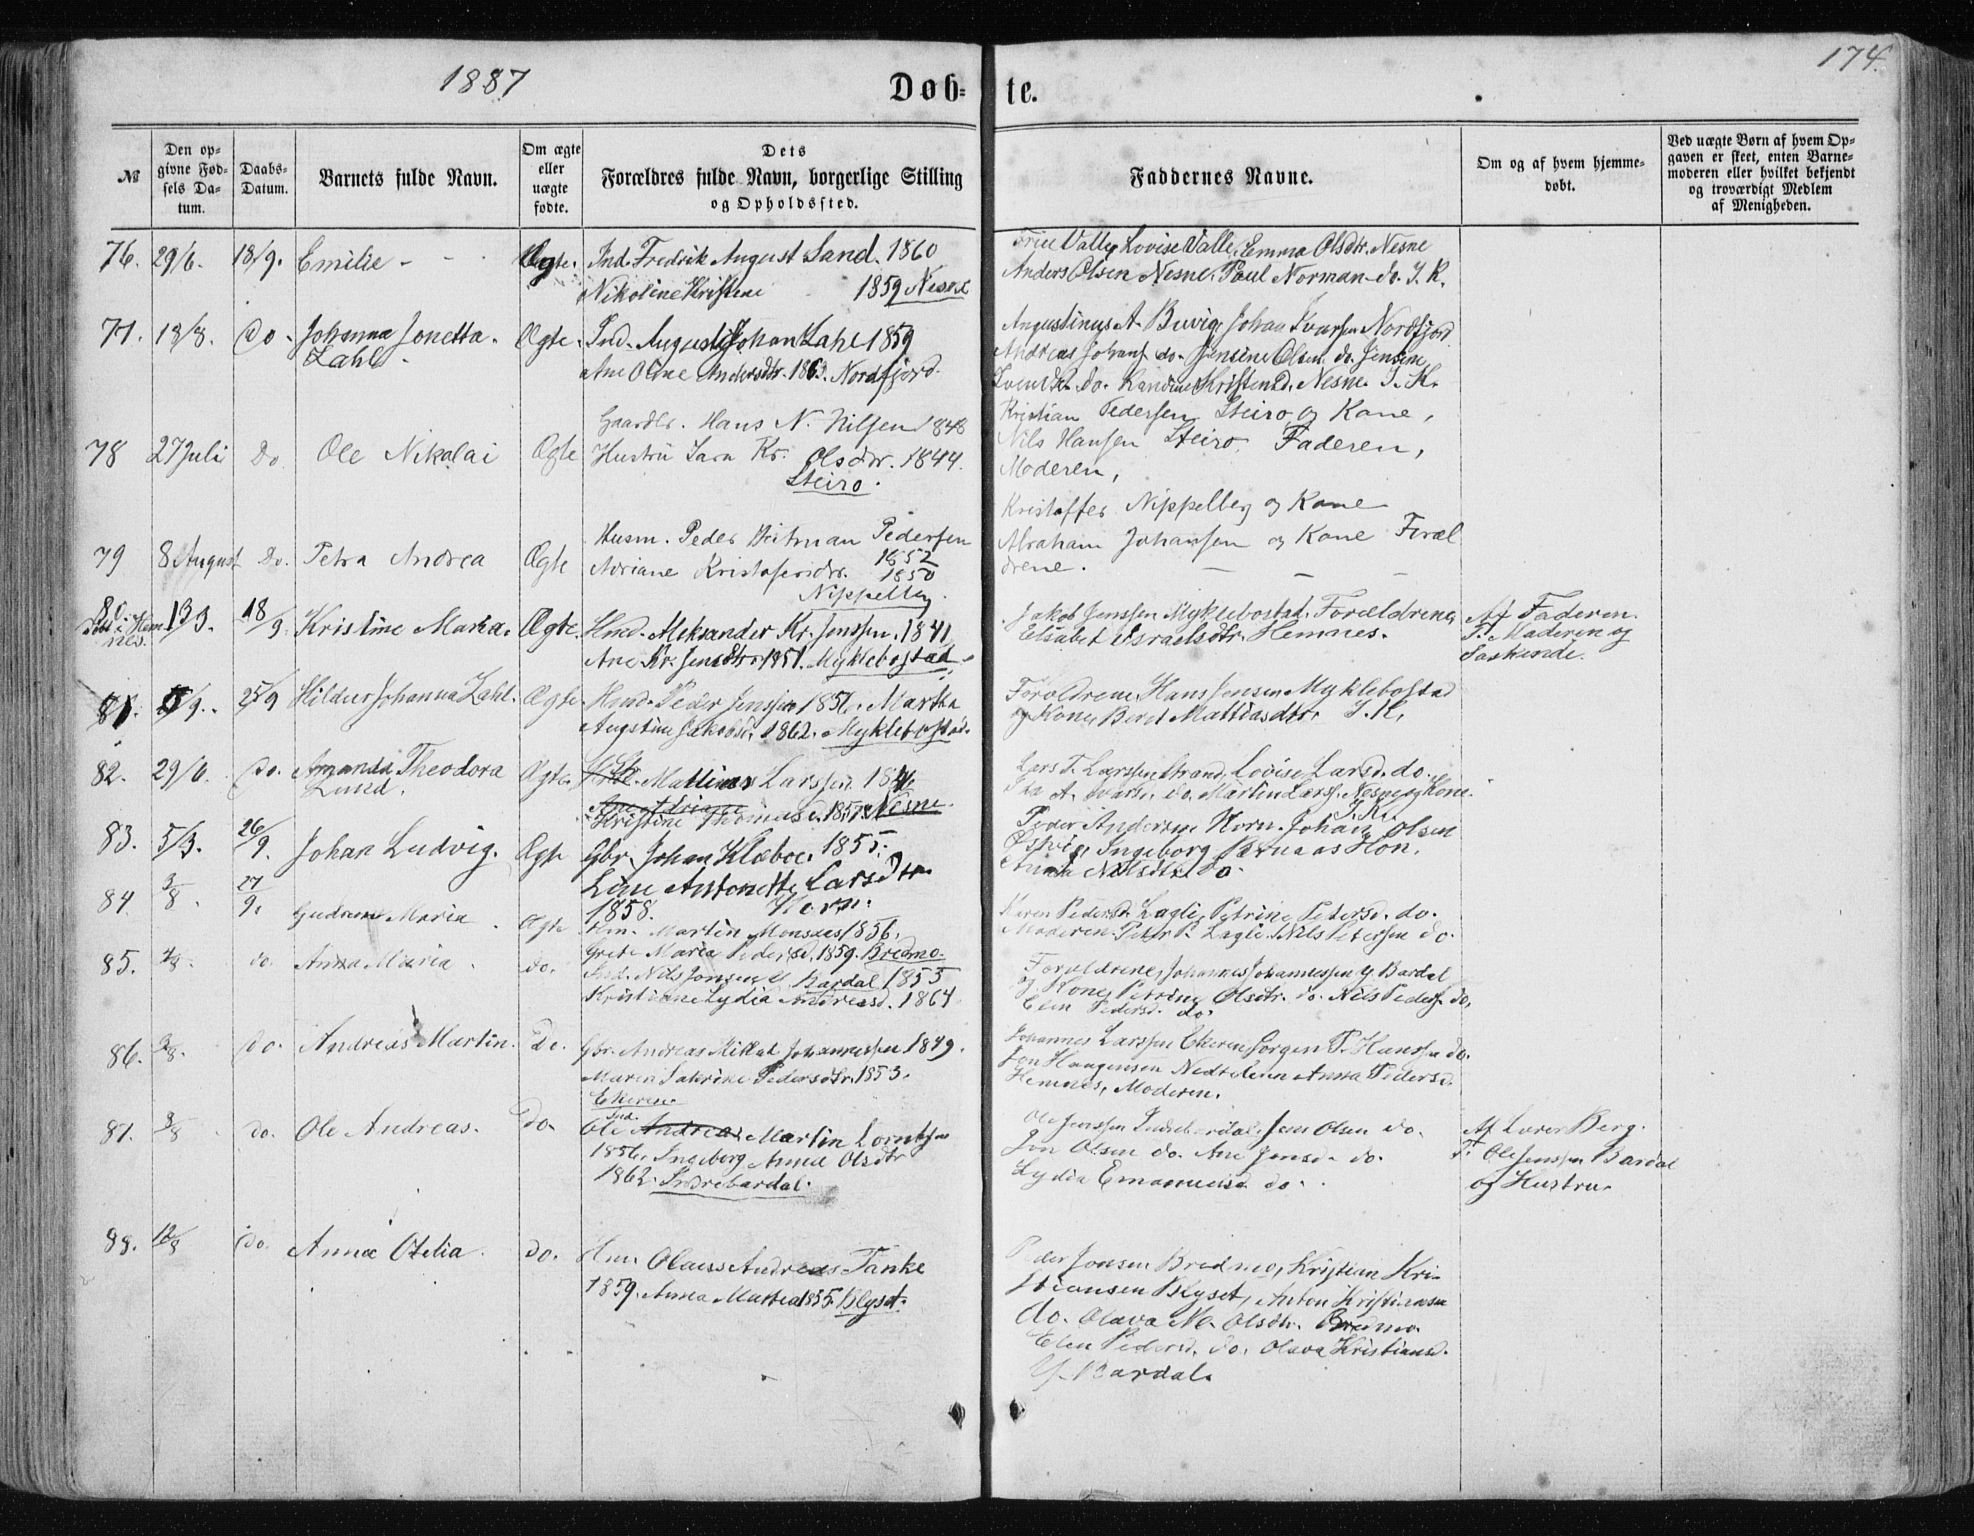 1887
Døb-
te.
174.
№
Den opgivne Fødsels Datum.
Daabs-Datum.
Barnets fulde Navn.
Om ægte eller uægte fødte.
Dets Forældres fulde Navn, borgerlige Stilling og Opholdssted.
Faddernes Navne.
Om og af hvem hjemmedøbt.
Ved uægte Børn af hvem Opgaven er skeet, enten Barnemoderen eller hvilket bekjendt og troværdigt Medlem af Menigheden.
76. 29/6. 18/9. Emilie - Ægte. Ind. Fredrik August Sand. 1860
Nikoline Kristine 1859 Nesne
Valle, Lovise Valle, Emma Olsdtr. Nesne
Anders Olsen Nesne. Paul Norman do. I. K.
77. 18/8. Do. Johanna Jonetta Zahl Ægte. Ind. August Johan Zahl 1859
Ane Oline Andersdtr. Nordfjord.
Augustinus A. Buvig, Johan Ivarsen Nordfjord
Andreas Johans. do. Jensine Olsen do. Jensine
do. Kristend. Nesne. I. K.
78 27 Juli Do. Ole Nikolai Ægte Gaardbr. Hans N. Nilsen 1848
Hustru Sara Kr. Olsdtr. 1844.
Steiro.
Kristian Pedersen Steiro og Kone,
Nils Hansen Steiro, Faderen,
Moderen,
79 8 August Do. Petra Andrea Ægte Husm. Peder Hitman Pedersen
1852
Adriane Kristofersdtr. 1850
Nippelberg.
Kristoffer Nippelberg og Kone
Abraham Johansen og Kone Foræl
drene.
80. 18/9 Kristine Marka. Ægte. Hmd. Aleksander Kr. Jenssen. 1841
Ane Kr. Jensdtr. 1851. Myklebostad
Jakob Jenssen Myklebostad. Forældrene,
Elisabet Israelsdtr. Hemnes.
Af Faderen.
F. Moderen og
81. 25/9 Hildur Johanna Zahl. Ægte. Hmd. Peder Jenssen 1856. Martha
Augstine Jakobsd. 1862. Myklebostad.
Forældrene, Hans Jensen Myklebostad
og Kone, Beret Mattiasdtr. I. K.
82. 29/6. Do. Amanda Theodora Lund. Ægte. Mattias Larssen
Kristine Thomasd. Nesne.
Lars T. Larssen Strand, Lovise Larsd. do.
do. Martin Larss. Nesne og Kone.
I. K.
83. 5/3. 26/9. Johan Ludvig. Ægte Gbr. Johan Klæboe. 1855.
Line Antonette Larsdtr.
1858. Horn.
Peder Andersen Horn. Johan Olsen
Ingeborg
do.
84 3/8. 27/9. Maria Ægte Hm. Martin Monsæs 1856.
Grete Maria Pedersd. 1859. Bredmo.
Karen Pedersd. Laglie, Petrine Petersd. do.
Moderen. Peter P. Laglie. Nils Petersen do.
85. do. Anna Maria do. Ind. Nils Jonsen Y. Bardal 1855
Kristiane Lydia Andreasd. 1864
Forældrene, Johannes Johannessen Y. Bardal
og Kone, Petrine Olsdtr. do. Nils Peders. do,
Elen Pedersd. do.
86. do. Andreas Martin. Do. Gbr. Andreas Mikal Johannessen 1849.
Maren Katrine Pedersdtr. 1853.
Ekeren.
Johannes Larssen Ekeren, Jorgen P. Hanssen do.
Jon Haagensen Anna Pedersd.
Hemnes, Moderen.
87. do. Ole Andreas. do. Ind.
Ole Andreas Martin Lorntsen
1856. Ingeborg Anna Olsdtr.
1862. Indrebardal.
Ole Jenssen Indrebardal, Jens Olsen do.
Jon Olsen do. Ane Jonsd. do.
Lydia do.
Af Lærer Berg.
F. Ole Jenssen Bardal
og Hustru.
88. 12/8 do. Anna Otelia. do. Hm. Olaus Andreas Tanke
1859. Anna Martea 1855. Blyset.
Peder Jonsen Bredmo, Kristian Kri-
stiansen Blyset, Anton Kristiansen
do. Olava M. Olsdtr. Bredmo.
Elen Pedersd. do. Olava Kristiansd.
Y. Bardal.